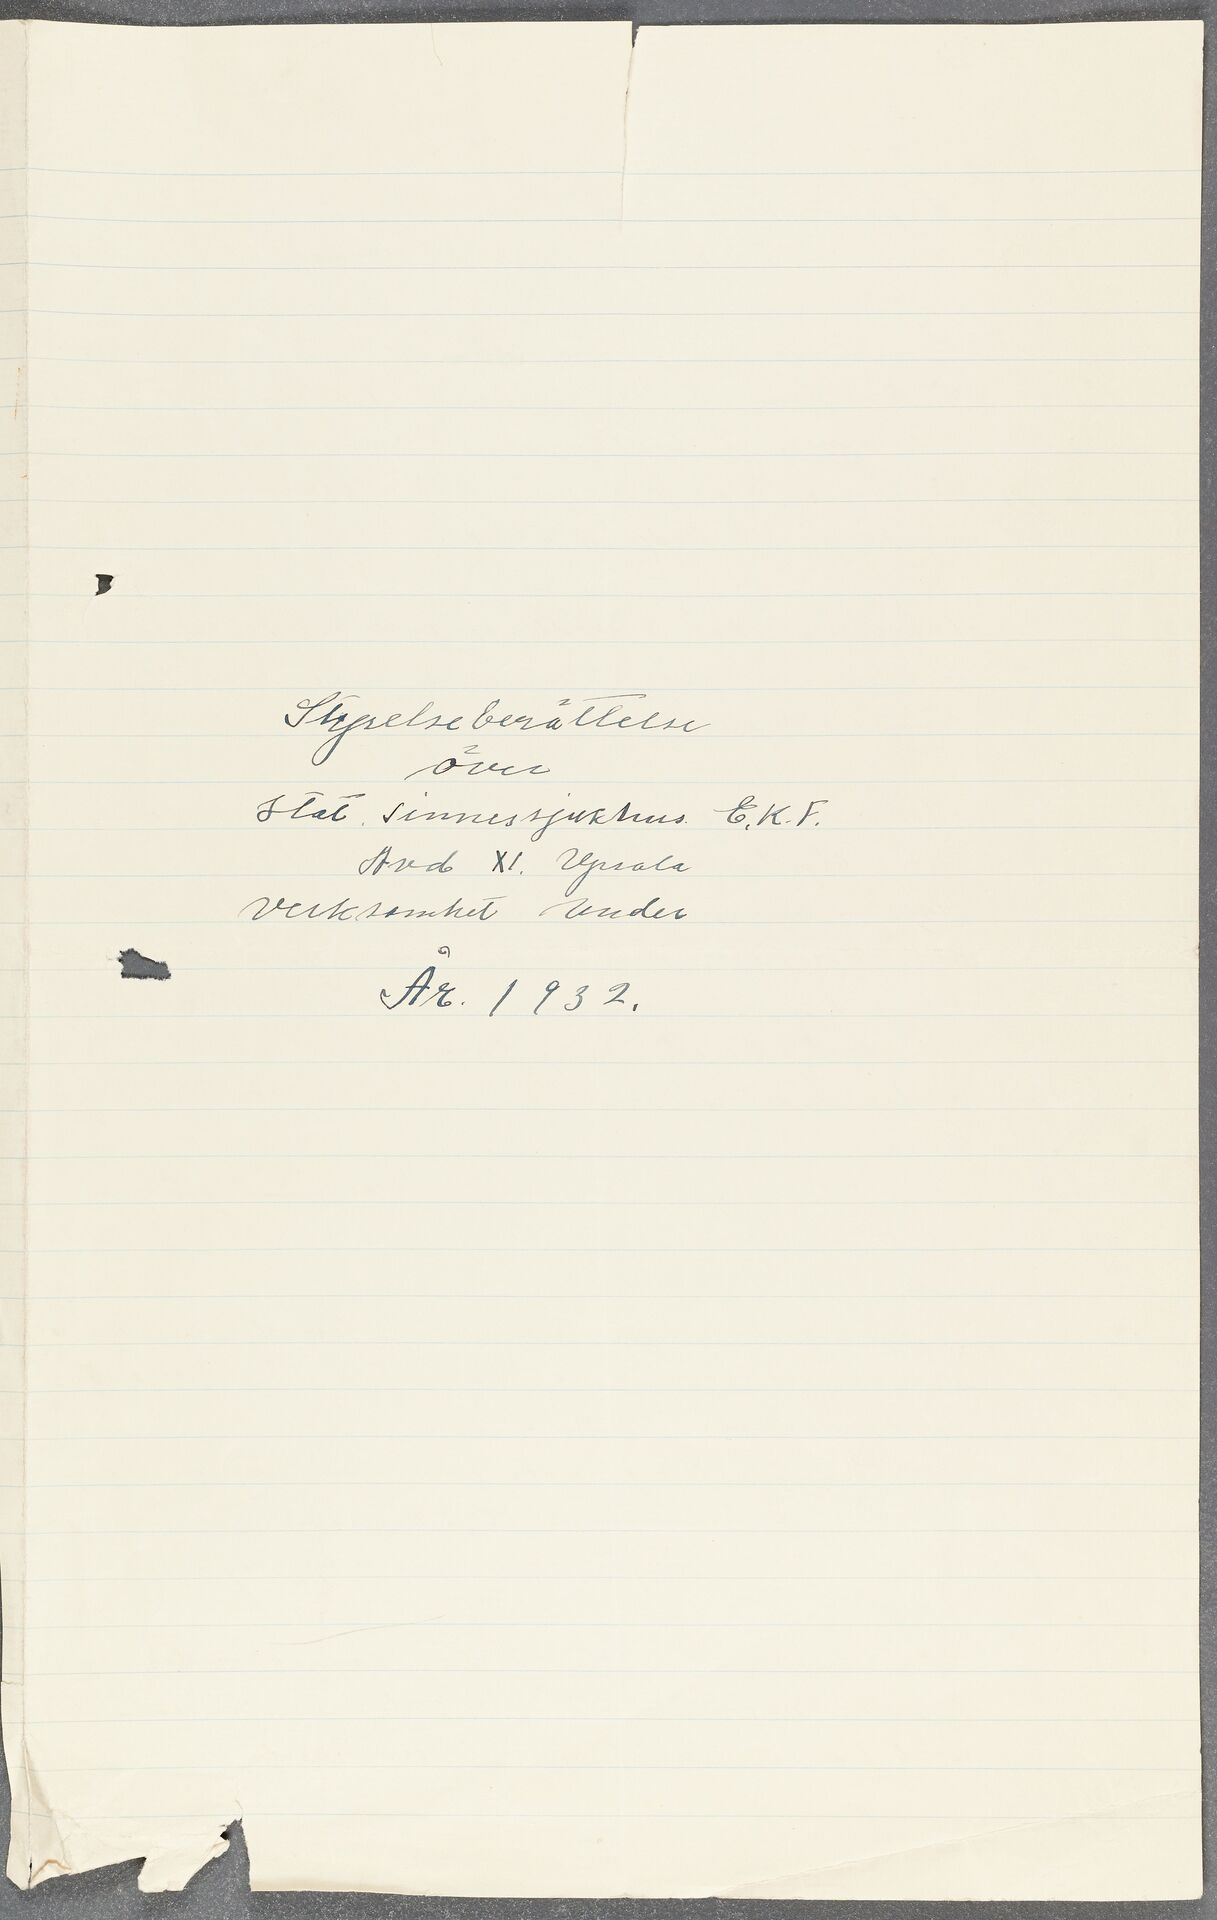 Styrelseberättelse
över
Stat. Sinnessjukhus. E.K.F.
Avd XI. Upsala
Verksamhet under
År. 1932.